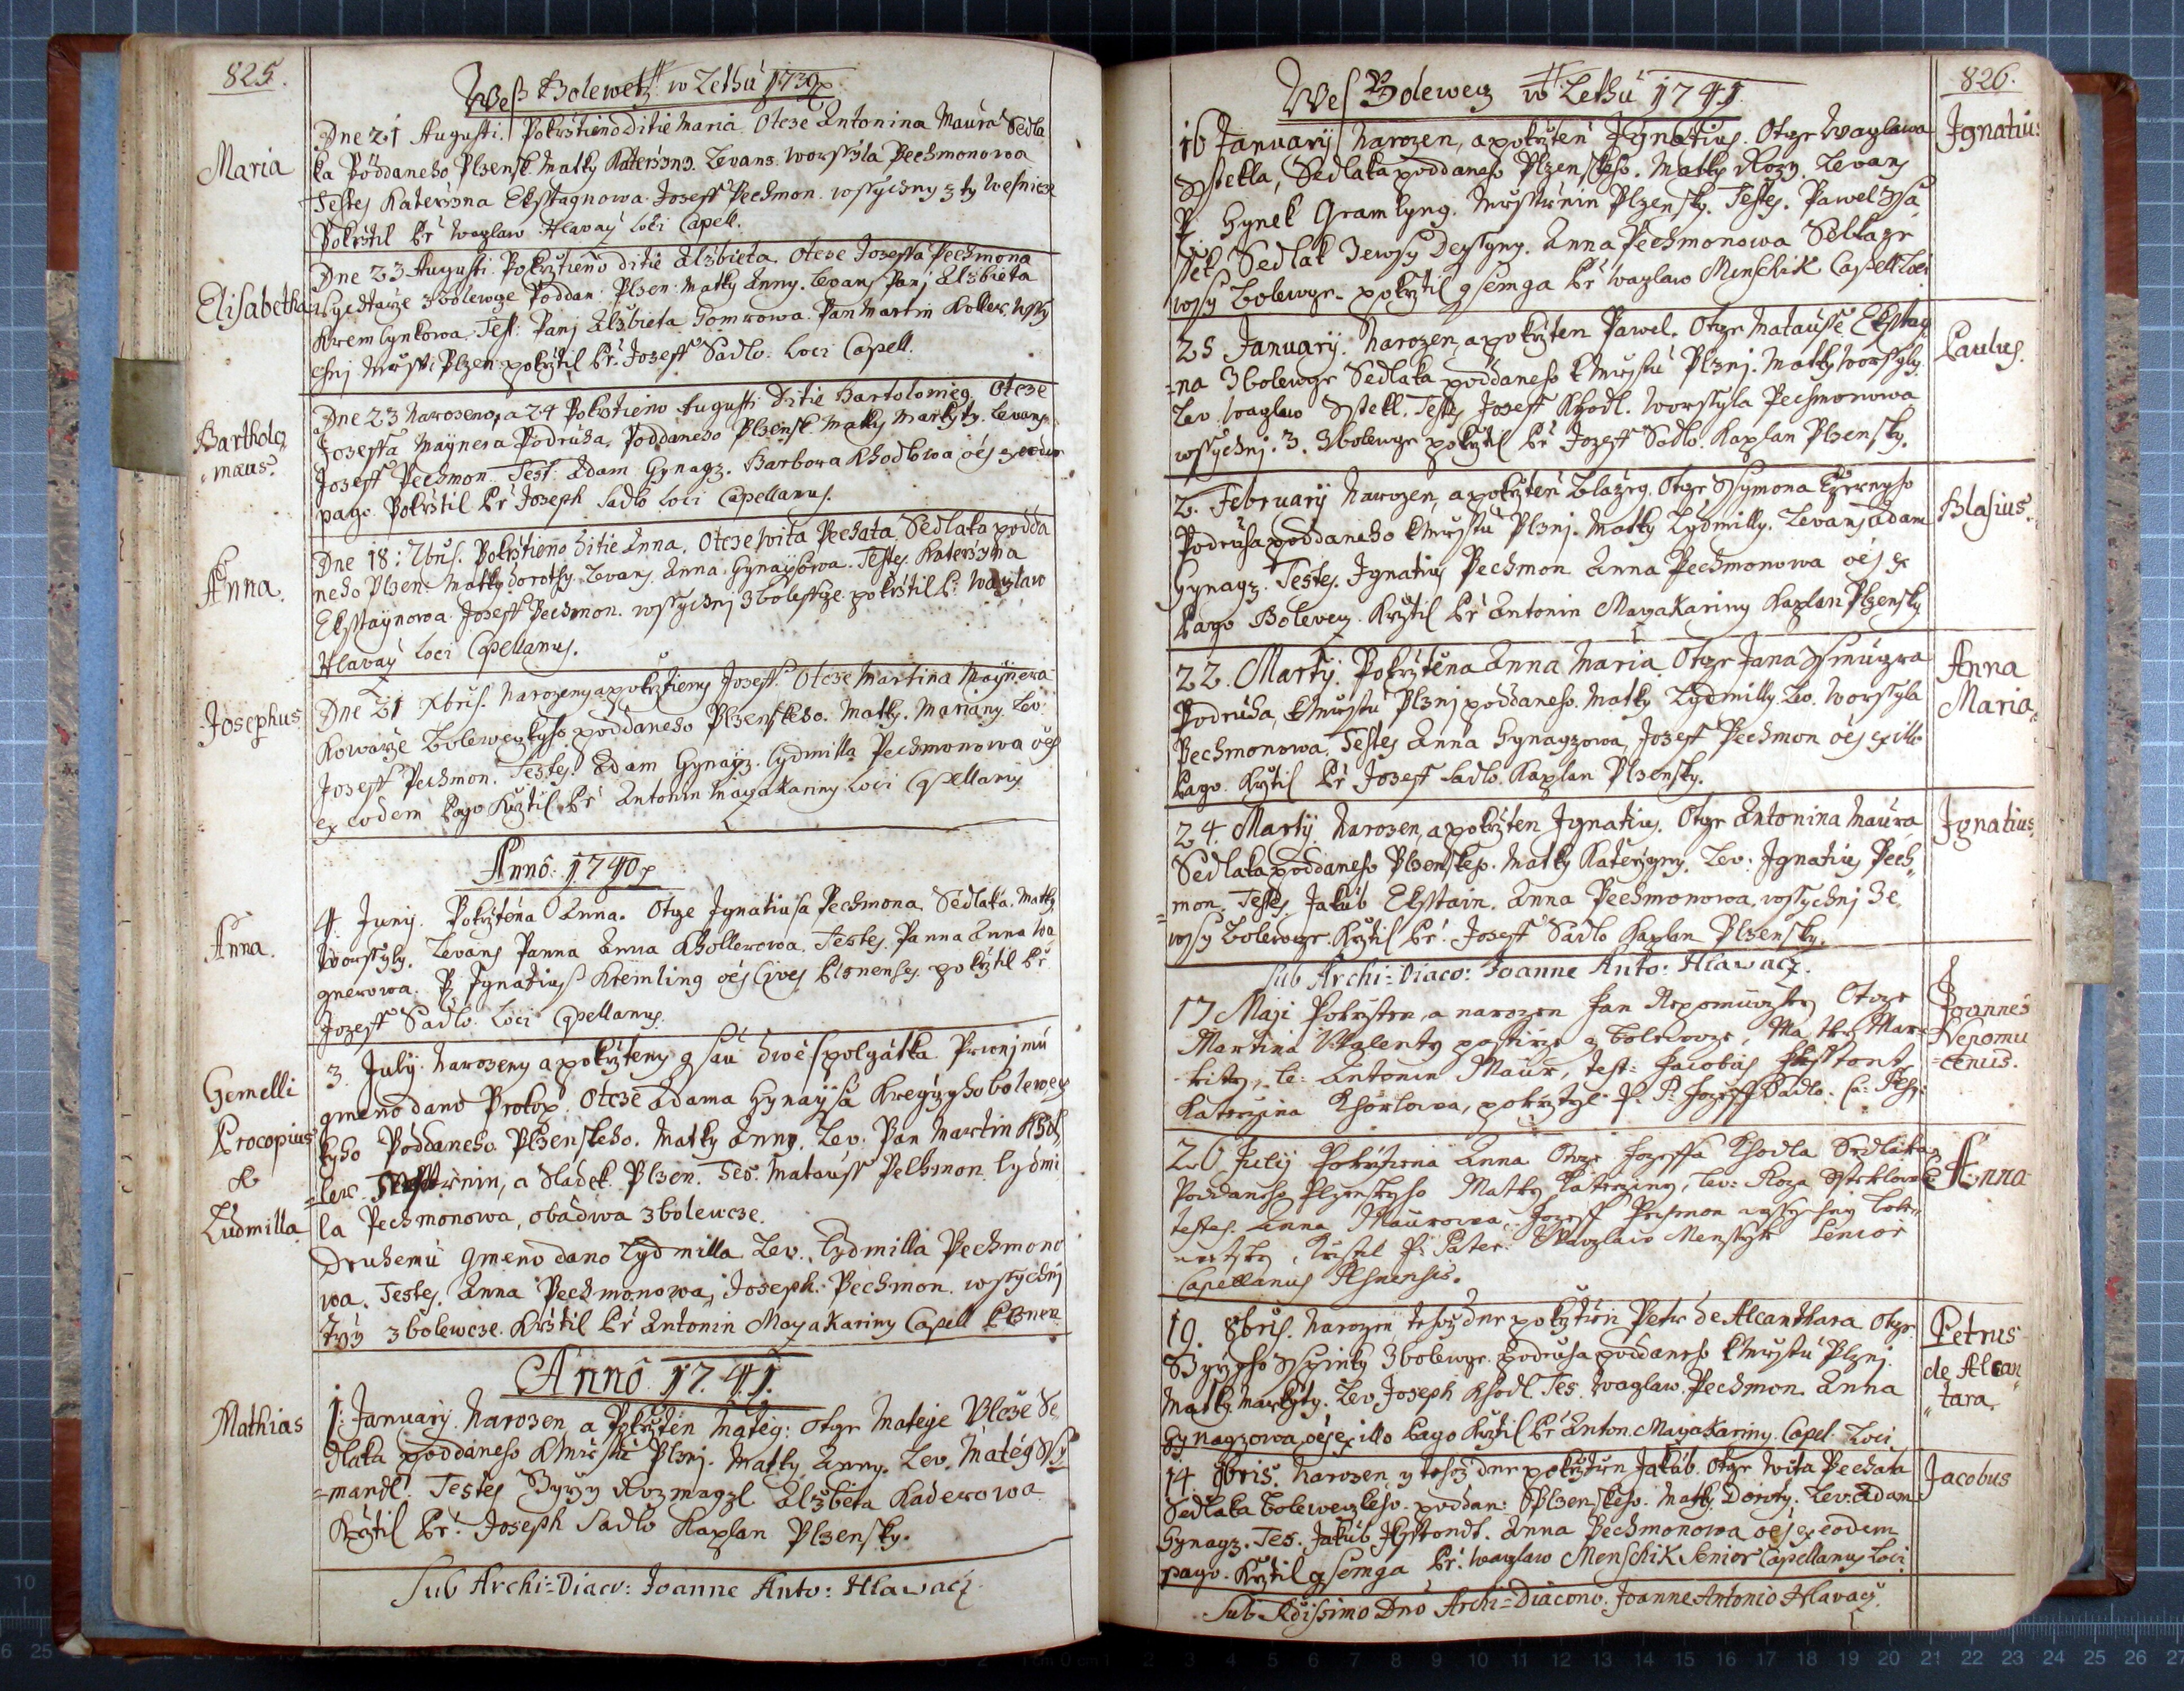 825.
Weß Bolewetz w Lethu 1739
Maria
Dne 21 Augusti. Pokrstieno Ditie Maria. Otcze Antonina Maura Sedla
ka Poddaneho Plzensk. Matky Katerżyny. Levans. Worssyla Pechmonowa
Testes Katerżyna Ekstaynowa. Joseff Pechmon. wssyczny z ty Wesnicze
Pokrstil Pr Waczlaw Hlavacz Loci Capell.
Elisabetha
Dne 23 Augusti. Pokrztieno ditie Alzbieta. Otcze Joseffa Pechmona
z Bolewcze Poddan: Plzen: Matky Anny. Levans Panj Alzbieta
Kremlynkowa. Test: Panj Alzbieta Pan Martin Koller. wssy
chnj Plzen pokrztil Pr. Joseff Sadlo. Loci Capell.
Bartholo
mæus.
Dne 23 Narozeno, a 24 Pokrstieno Augusti Ditie Bartolomieg, Otcze
Joseffa Maynera Podruha, Poddaneho Plzensk. Matky Markyty. Levans
Joseff Pechmon. Test. Adam Gynagz. Barbora Khodlowa oēs ex eodem
pago. Pokrstil Pr Joseph Sadlo Loci Capellanus.
Anna.
Dne 18: 7bris. Pokrstieno Ditie Anna. Otcze Wita Pechata, Sedlaka podda
neho Plzen. Matky Dorothy. Levans. Anna Gynayssowa. Testes. Katerżyna
Ekstaynowa. Joseff Pechmon. wssychnj z pokrstil P: Waczlaw
Hlavacz Loci Capellanus.
Josephus
Dne 21 Xbris. Narozeny a pokrztieny Joseff. Otcze Martina Maynera
Kowarze Boleweczkyho poddaneho Plzenskeho. Matky. Mariany. Lev:
Joseff Pechmon. Testes. Adam Gynayz. Lydmilla Pechmonowa oēs
ex eodem Pago Krztil Pr Antonin Mayakariny Loci Capellany
Anno 1740
Anna.
4. Junij. Pokrztena Anna. Otcze Ignatiusa Pechmona, Sedlaka. Matky
Worssyly. Levans Panna Anna Khollerowa. Testes. Panna Anna Wa
gnerowa. P. Ignatius Kremling oēs Cives Plsnenses. pokrztil Pr
Jozeff Sadlo. Loci Capellanus.
Gemelli
Procopius
&
Ludmilla
3. July. Narozeny a pokrzteny gsau dwe spolczatka. Prwnjmu
gmeno dano Prokop. Otcze Adama Gynaysa Kregczyho bolewecz
kyho Poddaneho Plzenskeho. Matky Anny. Lev: Pan Martin Khol
ler. a Sladek. Plzen. Tes. Matauss Pechmon. Lydmi
la Pechmonowa, obadwa z bolewcze.
Druhemu gmeno dano Lydmilla. Lev. Lydmilla Pechmono
wa. Testes. Anna Pechmonowa, Joseph Pechmon. wssychnj
z bolewcze. Krztil Pr Antonin Mayakariny Capell. Plsnen.
Anno 1741.
Mathias
1. January. Narozen a Pokrzten Mateg: Otcze Mateje Se
dlaka poddaneho K Miestu Plznj. Matky Anny. Lev. Mateg
mandl. Testes Rozmagzl Alzbeta Kaderowa
Krztil Pr. Joseph Sadlo Kaplan Plzensky.
Sub Archi-Diaco: Joanne Anto: Hlawacz
826.
Wes Bolewecz w Lethu 1741
Ignatius
16 January Narozen, a pokrzten Ignatius. Otcze Waczlawa
Sstekla, Sedlaka poddaneho Plzenskeho. Matky Rozy. Levans
P. Hynek Gramlyng. Plzensky. Testes. Pawel
Sedlak Anna Pechmonowa
wsy bolewcze. pokrztil gsemga Pr Waczlaw Menschik Capell Loci
Paulus.
25 January. Narozen, a pokrzten Pawel. Otcze Matausse Ekstay
na z bolewcze Sedlaka poddaneho K Miestu Plznj. Matky Worssyly
Lev. Waczlaw Sstekl. Testes Joseff Khodl. Worssyla Pechmonowa
wssychnj z bolewcze pokrztil Pr Jozeff Sadlo. Kaplan Plzensky.
Blasius.
2. February Narozen, a pokrzten Blażeg. Otcze Ssymona
Podruha poddaneho K Miestu Plznj. Matky Lydmilly. Levans Adam
Gynagz. Testes. Ignatius Pechmon Anna Pechmonowa oēs ex
Pago Bolevecz. Krztil Pr Antonin Mayakariny Kaplan Plzensky
Anna
Maria
22. Martij. Pokrztena Anna Maria. Otcze Jana
Podruha, K Miestu Plznj poddaneho. Matky Lydmilly. Lev. Worssyla
Pechmonowa. Testes Anna Gynagzowa, Jozeff Pechmon oēs ex illo
Pago. Krztil Pr Jozeff Sadlo. Kaplan Plzensky.
Ignatius
24. Martij. Narozen, a pokrzten Ignatius. Otcze Antonina Maura
Sedlaka poddaneho Plzenskeho. Matky Katerżyny. Lev: Ignatius Pech
mon. Testes Jakub Ekstain. Anna Pechmonowa, wssychnj ze
wsy bolewcze. Krztil Pr. Joseff Sadlo Kaplan Plzensky.
Sub Archi-Diaco: Joanne Anto: Hlawacz.
Joannes
Nepomu
cenus.
17 Maji Pokrzten, a narozen Jan Nepomuczky Otcze
Martina Walenty z bolewcze, Matky Mar
kity, Le: Antonin Maur, test: Jacobus
Katerzina Khorlowa, pokrztyl P. Jozeff Sadlo.
Anna
20 Julij Pokrztena Anna Otcze Jozeffa Khodla Sedlaka
Poddaneho Plzenskyho Matky Katerziny, Lev: Roza Sstekloua
testes. Anna Maurowa, Jozeff Pechmon wssychny
Krztil P. Pater. Waczlaw Menssyk Senior
Capellanus Plsnensis.
Petrus
de Alcan
tara.
19. 8bris. Narozen tehoz dne pokrzten Petr de Alcanthara. Otcze
Sspinky z bolewcze. podruha poddaneho K Miestu Plznj.
Matky Markyty. Lev Joseph Khodl. Tes. Waczlaw Pechmon. Anna
Gynagzowa, oēs ex illo Pago Krztil Pr Anton. Mayakariny. Capel. Loci
Jacobus
14 8bris. Narozen y tehoz dne pokrzten Jakub. Otcze Wita Pechata
Sedlaka boleweczkeho. poddan: Plzenskeho. Matky Doroty. Lev. Adam
Gynagz. Tes. Jakub Anna Pechmonowa oēs ex eodem
pago. Krztil gsemga Pr. Waczlaw Menschik Senior Capellanus Loci.
Sub Rdissimo Dno Archi-Diacono. Joanne Antonio Hlavacz.